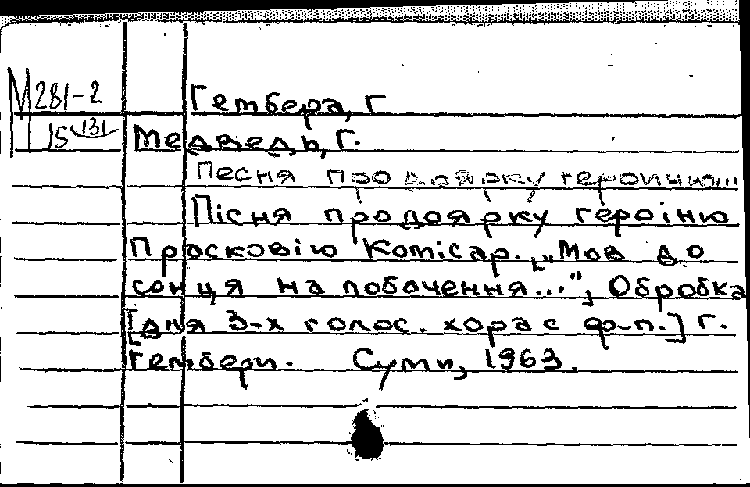 М281-2
Гембера, Г
15 131
Медведь, Г.
Песня про доярку героиню...
Пісня про доярку героіню
Просковію Комісар. ["Мов до
сонця на побачення..."; Обробка
[для 3-х голос. хора с ф-п.] Г.
Гембери. Суми, 1963.